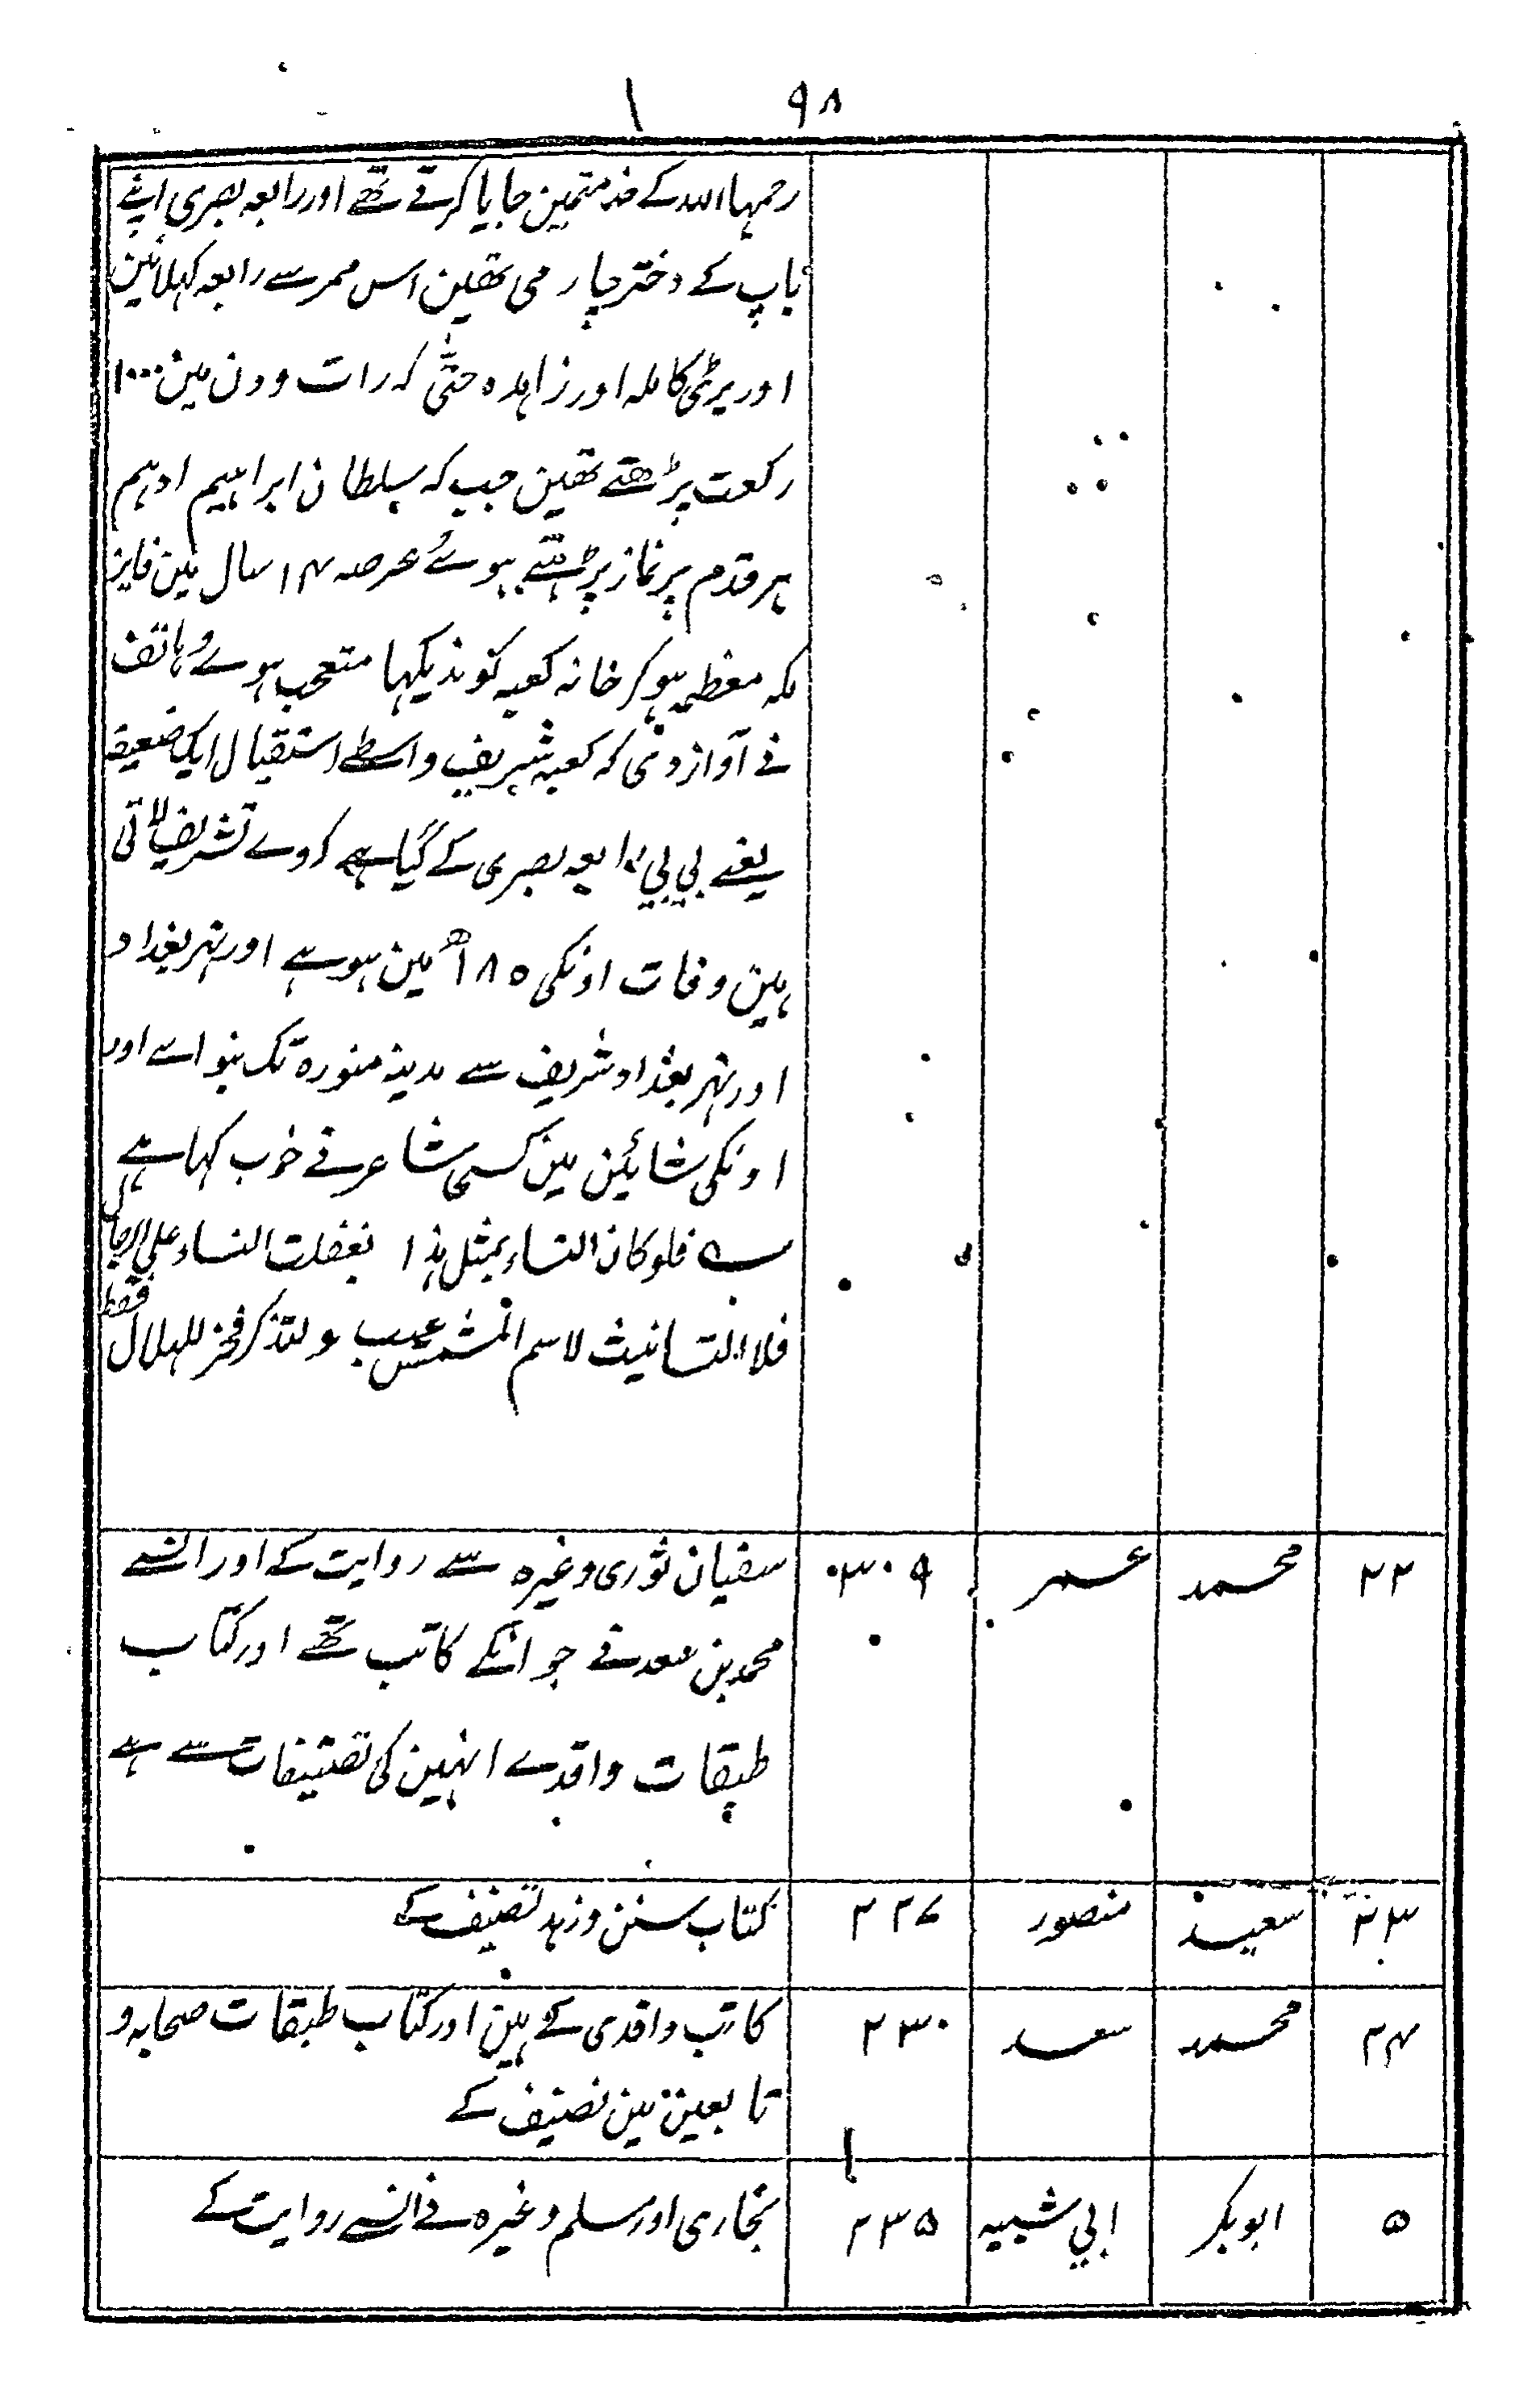 ۹۸
رحمہا اللہ کے خدمتمین جایا کرتے تھے اور رابعہ بصری اپنے
باپ کے دختر چارمی تھین اس ممر سے رابعہ کہلائین
اور بڑی کاملہ اور زاہدہ حتیٰ کہ رات و دن مین ۱۰۰۰
رکعت پڑھتے تھین جب کہ سلطان ابراہیم ادہم
ہر قدم پر نماز پڑہتے ہوئے عرصہ ۱۴ سال مین فایز
مکہ معظمہ ہو کر خانہ کعبہ کو ندیکہا متعجب ہوے ہاتف
نے آواز دی کہ کعبہ شریف واسطے استقبال ایک ضعیفہ
یعنے بی بی رابعہ بصری کے گیا ہے کہ وے تشریف لاتی
ہین وفات اونکی ۱۸۵ھ مین ہوے اور نہر بغداد
اور نہر بغداد شریف سے مدینہ منورہ تک بنواے اور
اونکی شانین مین کسی شاعر نے خوب کہا ہے
ے فلو کان النساء بمثل ہذا بفضلت النساء علی الرجال
فلا التانیث لاسم الشمس عیب ولتذکر فخر للہلال فقط
۲۲ محمد عمر ۳۰۹ سفیان ثوری وغیرہ سے روایت کے اور انسے
محمد بن سعد نے جو انکے کاتب تھے اور کتاب
طبقات واقدے انہین کی تصنیفات سے ہے
۲۳ سعید منصور ۲۲۷ کتاب سنن و زہد تصنیف کے
۲۴ محمد سعد ۲۳۰ کاتب واقدی کے ہین اور کتاب طبقات صحابہ و
تابعین مین تصنیف کے
۵ ابوبکر ابی شیبہ ۲۳۵ بخاری اور مسلم وغیرہ نے انسے روایت کے